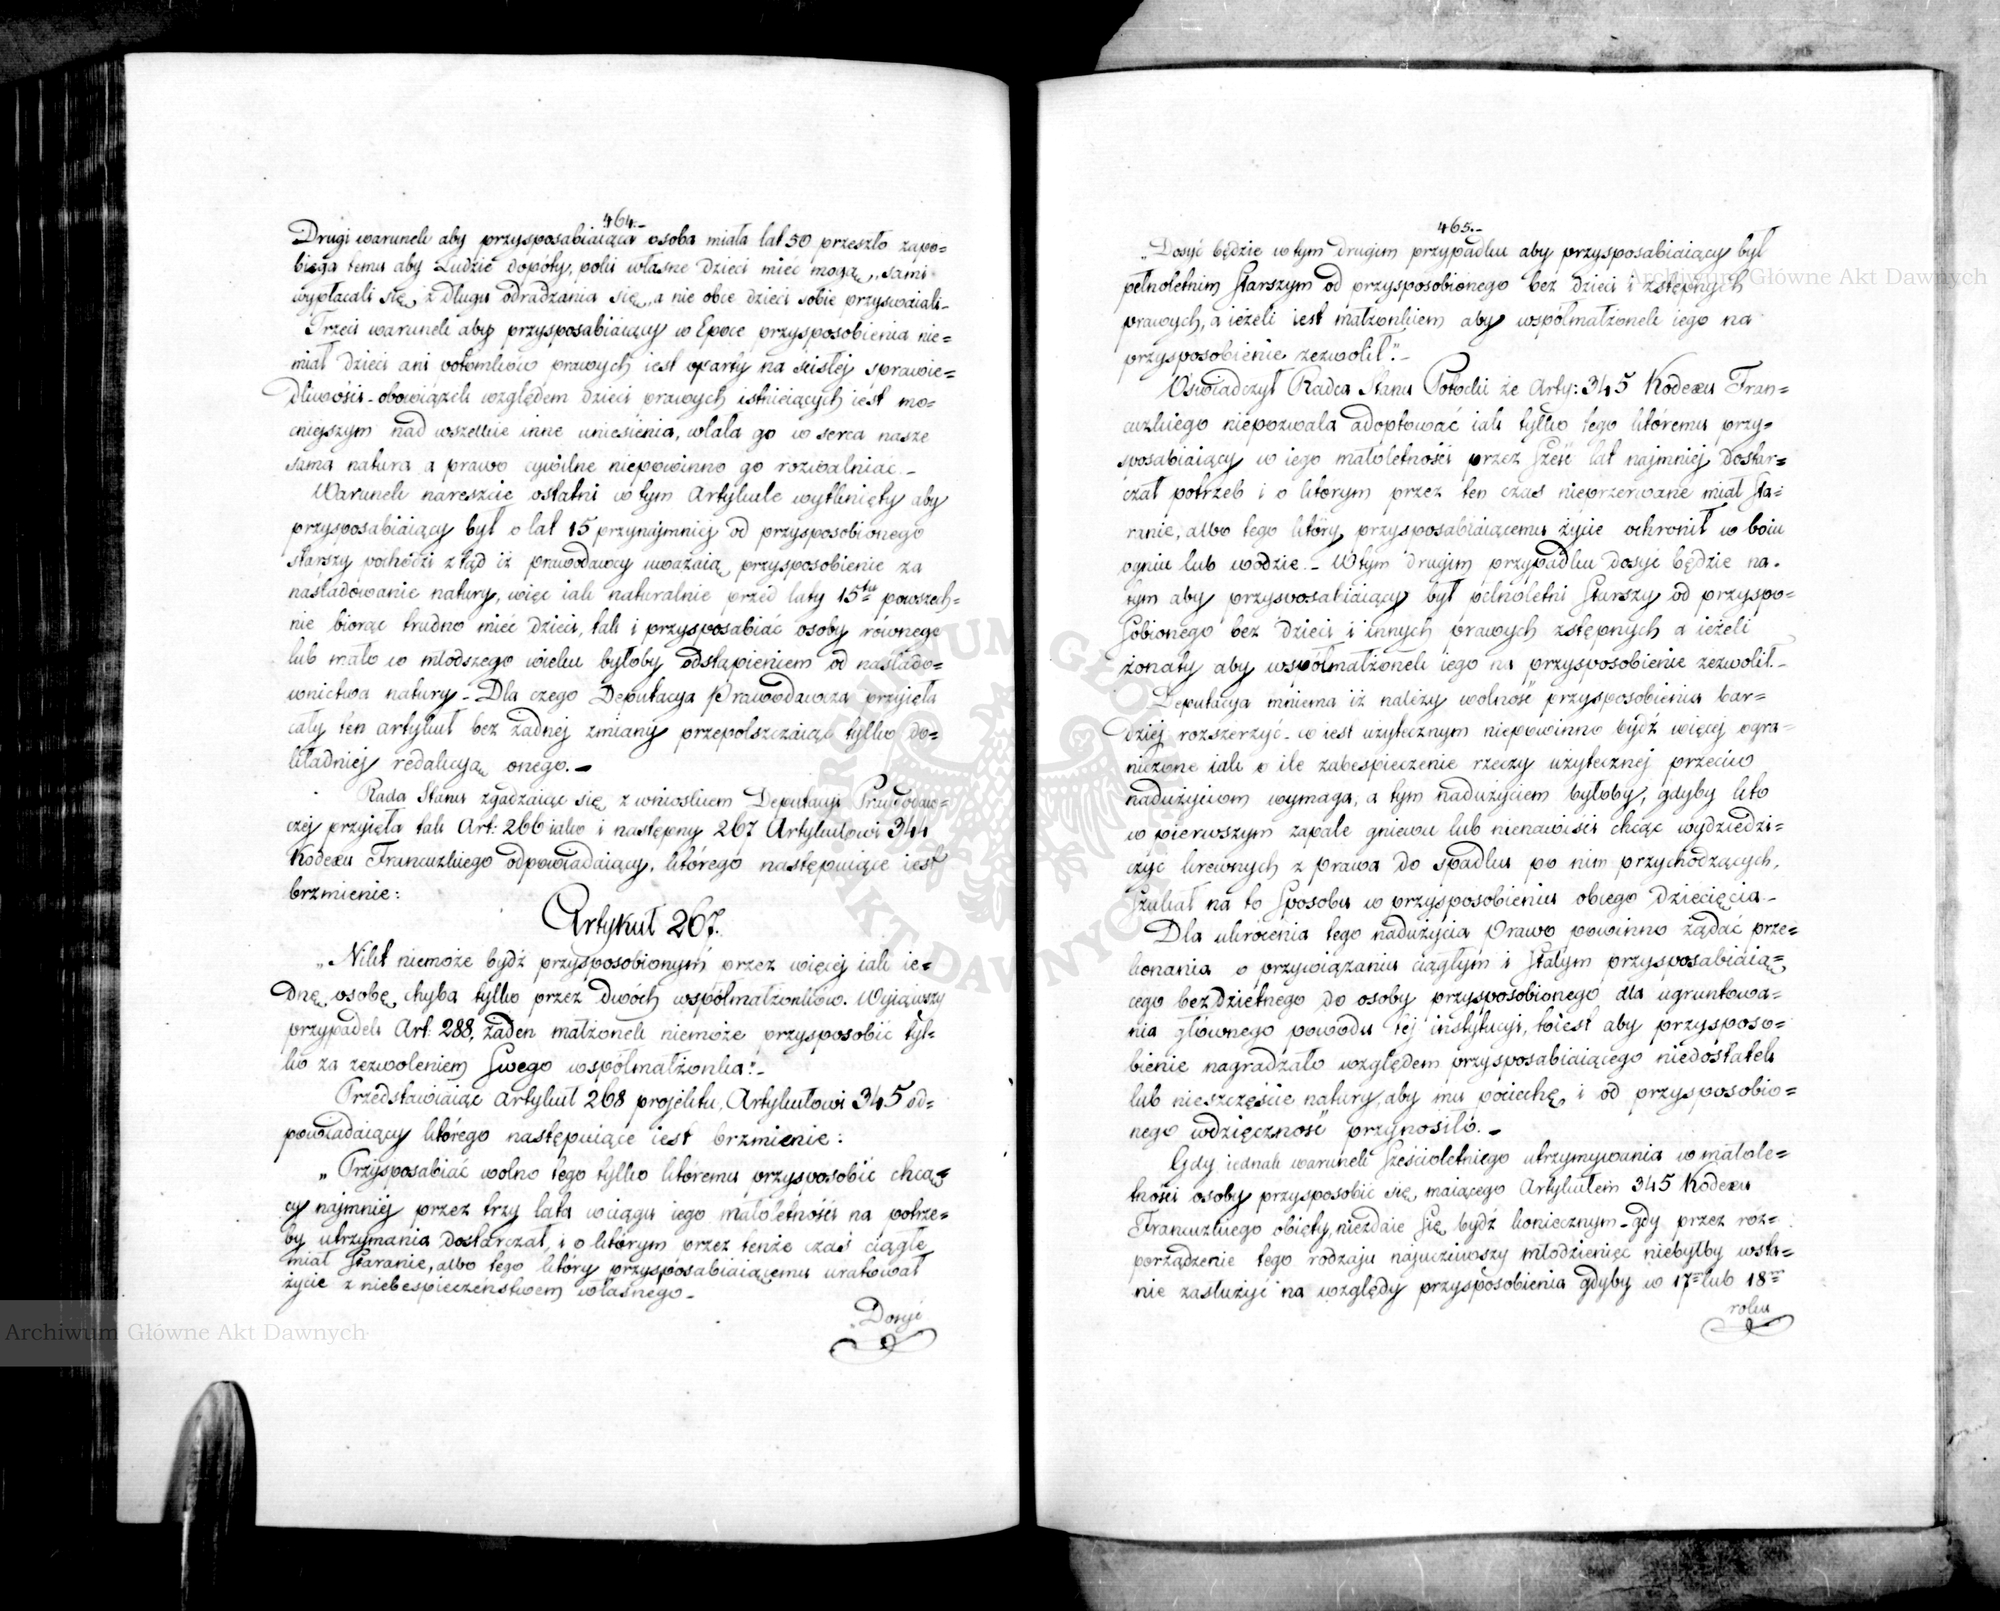 464.
Drugi warunek aby przysposabiaiąca osoba miała lat 50 przeszło zapo=
biega temu aby Ludzie dopóty, póki własne dzieci mieć mogą, sami
wypłacali się z długu odradzania się, a nie obce dzieci sobie przyswaiali.
Trzeci warunek aby przysposabiaiący w Epoce przysposobienia nie=
miał dzieci ani potomków prawych iest oparty na ścisłéj sprawie=
dliwości. obowiązek względem dzieci prawych istnieiących iest mo=
cniejszym nad wszelkie inne uniesienia, wlała go w serca nasze
sama natura a prawo cywilne niepowinno go rozwalniać._
Warunek nareszcie ostatni w tym Artykule wytknięty aby
przysposabiaiący był o lat 15 przynajmniej od przysposobionego
starszy pochodzi ztąd iż prawodawcy uważaią przysposobienie za
naśladowanie natury, więc iak naturalnie przed laty 15tu powszech=
nie biorąc trudno mieć dzieci, tak i przysposabiać osoby równego
lub mało co młodszego wieku byłoby odstąpieniem od naślado=
wnictwa natury. Dla czego Deputacya Prawodawcza przyięła
cały ten artykuł bez żadnej zmiany przepolszczaiąc tylko do=
kładniej redakcyą onego._
Rada Stanu zgadzaiąc się z wnioskiem Deputacyi Prawodaw=
czej przyięła tak Art: 266 iako i następny 267 Artykułowi 344
Kodexu Francuzkiego odpowiadaiący, którego następuiące iest
brzmienie:
Artykuł 267.
„Nikt niemoże bydź przysposobionym przez więcej iak ie=
dnę osobę, chyba tylko przez dwóch współmałżonków. Wyiąwszy
przypadek Art: 288, żaden małżonek niemoże przysposobić tyl=
ko za zezwoleniem Swego współmałżonka”._
Przedstawiaiąc Artykuł 268 projektu, Artykułowi 345 od=
powiadaiący którego następuiące iest brzmienie:
„Przysposabiać wolno tego tylko któremu przysposobić chcą=
cy najmniej przez trzy lata wciągu iego małoletności na potrze=
by utrzymania dostarczał, i o którym przez tenże czas ciągłe
miał Staranie, albo tego który przysposabiaiącemu uratował
życie z niebespieczeństwem własnego._
„Dosyć
465._
„Dosyć będzie w tym drugim przypadku aby przysposabiaiący był
pełnoletnim Starszym od przysposobionego bez dzieci i zstępnych
prawych, a ieżeli iest małżonkiem aby współmałżonek iego na
przysposobienie zezwolił.”_
Oświadczył Radca Stanu Potocki że Arty: 345 Kodexu Fran=
cuzkiego niepozwala adoptować iak tylko tego któremu przy=
sposabiaiący w iego małoletności przez Sześć lat najmniej dostar=
czał potrzeb i o którym przez ten czas nieprzerwane miał Sta=
ranie, albo tego który przysposabiaiącemu życie ochronił w boiu
ogniu lub wodzie._ W tym drugim przypadku dosyć będzie na
tym aby przysposabiaiący był pełnoletni Starszy od przyspo=
Sobionego bez dzieci i innych prawych zstępnych a ieżeli
żonaty aby współmałżonek iego na przysposobienie zezwolił._
Deputacya mniema iż należy wolność przysposobienia bar=
dziej rozszerzyć. co iest użytecznym niepowinno bydź więcej ogra=
niczone iak o ile zabespieczenie rzeczy użytecznej przeciw
nadużyciom wymaga, a tym nadużyciem byłoby, gdyby kto
w pierwszym zapale gniewu lub nienawiści chcąc wydziedzi=
czyć krewnych z prawa do spadku po nim przychodzących,
Szukał na to Sposobu w przysposobieniu obcego dziecięcia._
Dla ukrócenia tego nadużycia Prawo powinno żądać prze=
konania o przywiązaniu ciągłym i Stałym przysposabiaią=
cego bezdzietnego do osoby przysposobionego dla ugruntowa=
nia głównego powodu tej instytucyi, toiest aby przysposo=
bienie nagradzało względem przysposabiaiącego niedostatek
lub nieszczęście natury, aby mu pociechę, i od przysposobio=
nego wdzięczność przynosiło._
Gdy iednak warunek Sześcioletniego utrzymywania w małole=
tności osoby przysposobić się maiącego Artykułem 345 Kodexu
Francuzkiego obięty, niezdaie Się bydź koniecznym. gdy przez roz=
porządzenie tego rodzaju najuczciwszy młodzieniec niebyłby wsta=
nie zasłużyć na względy przysposobienia gdyby w 17m lub 18m
roku
Archiwum Główne Akt Dawnych
Archiwum Główne Akt Dawnych
ARCHIWUM GŁÓWNE AKT DAWNYCH